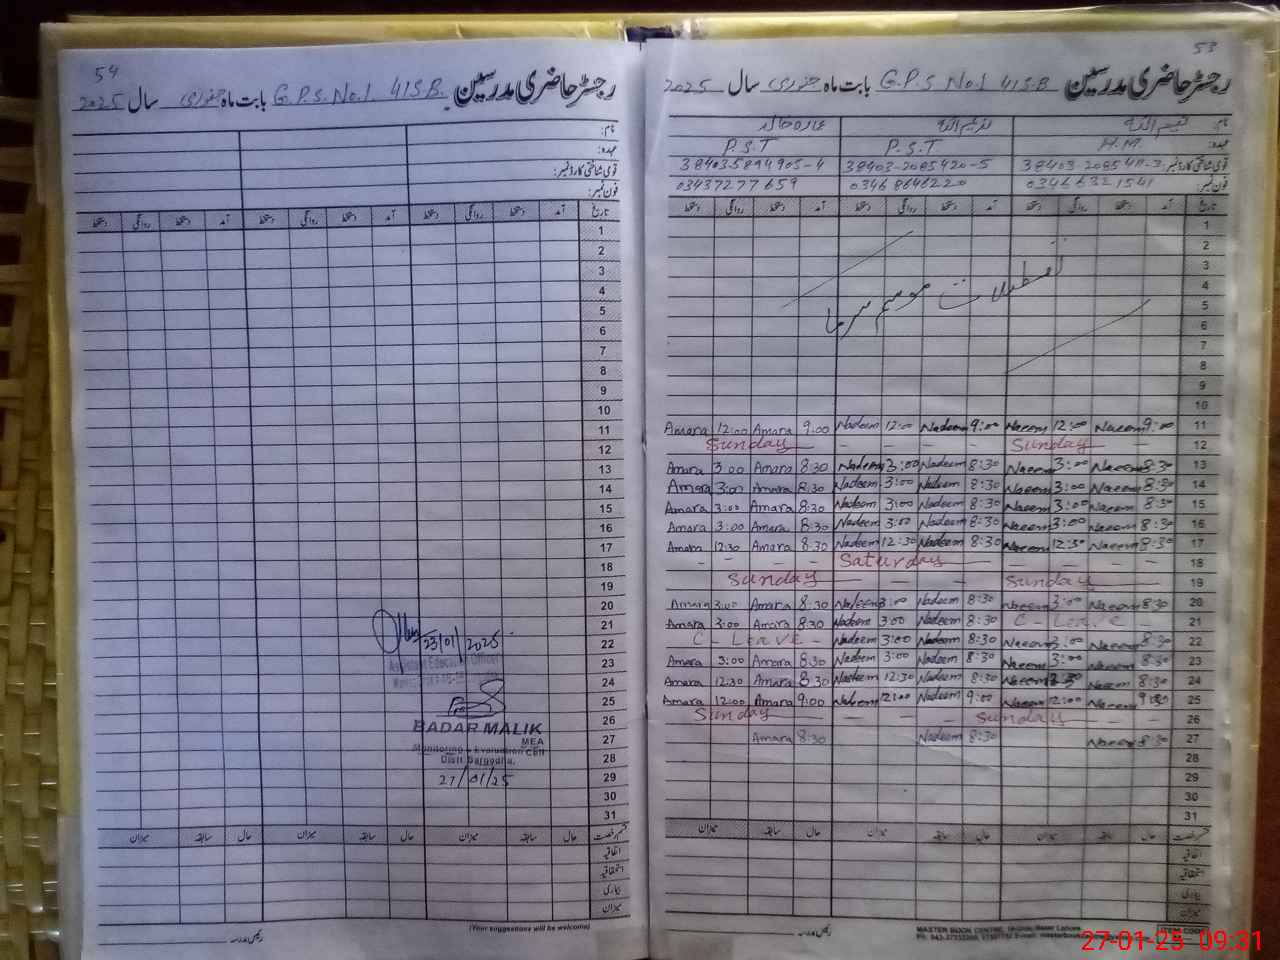 54
رجسٹر حاضری مدرسین G.P.S. No.1 41S.B. بابت ماہ جنوری سال 2025
نام:
عہدہ:
قومی شناختی کارڈ نمبر:
فون نمبر:
تاریخ آمد دستخط روانگی دستخط آمد دستخط روانگی دستخط آمد دستخط روانگی دستخط
1
2
3
4
5
6
7
8
9
10
11
12
13
14
15
16
17
18
19
20
21
22
23
24
25
26
27
28
29
30
31
23/01/2025
Assistant Education Officer
BADAR MALIK
MEA
Monitoring & Evaluation Cell
Distt. Sargodha.
27/01/25
قسم رخصت حال سابقہ میزان حال سابقہ میزان حال سابقہ میزان
اتفاقیہ
استحقاقیہ
بیماری
میزان
(Your suggestions will be welcome)
رئیس مدرسہ
53
رجسٹر حاضری مدرسین G.P.S No.1 41S.B بابت ماہ جنوری سال 2025
نام: نعیم اللہ ندیم اللہ عمارہ خالد
عہدہ: H.M. P.S.T P.S.T
قومی شناختی کارڈ نمبر: 38403-2085420-5 38403-5894905-4
فون نمبر: 03466321541 03468646220 03437277659
تاریخ آمد دستخط روانگی دستخط آمد دستخط روانگی دستخط آمد دستخط روانگی دستخط
1
2
3
4
5
6
7
8
9
10
تعطیلات موسم سرما
Amara 12:00 Amara 9:00 Nadeem 12:00 Nadeem 9:00 Naeem 12:00 Naeem 9:00 11
Sunday Sunday 12
Amara 3:00 Amara 8:30 Nadeem 3:00 Nadeem 8:30 Naeem 3:00 Naeem 8:30 13
Amara 3:00 Amara 8:30 Nadeem 3:00 Nadeem 8:30 Naeem 3:00 Naeem 8:30 14
Amara 3:00 Amara 8:30 Nadeem 3:00 Nadeem 8:30 Naeem 3:00 Naeem 8:30 15
Amara 3:00 Amara 8:30 Nadeem 3:00 Nadeem 8:30 Naeem 3:00 Naeem 8:30 16
Amara 12:30 Amara 8:30 Nadeem 12:30 Nadeem 8:30 Naeem 12:30 Naeem 8:30 17
Saturday 18
Sunday Sunday 19
Amara 3:00 Amara 8:30 Nadeem 3:00 Nadeem 8:30 Naeem 3:00 Naeem 8:30 20
Amara 3:00 Amara 8:30 Nadeem 3:00 Nadeem 8:30 C - Leave - 21
C - Leave - Nadeem 3:00 Nadeem 8:30 Naeem 3:00 Naeem 8:30 22
Amara 3:00 Amara 8:30 Nadeem 3:00 Nadeem 8:30 Naeem 3:00 Naeem 8:30 23
Amara 12:30 Amara 8:30 Nadeem 12:30 Nadeem 8:30 Naeem 12:30 Naeem 8:30 24
Amara 12:00 Amara 9:00 Nadeem 12:00 Nadeem 9:00 Naeem 12:00 Naeem 9:00 25
Sunday Sunday 26
Amara 8:30 Nadeem 8:30 Naeem 8:30 27
28
29
30
31
قسم رخصت حال سابقہ میزان حال سابقہ میزان حال سابقہ میزان
اتفاقیہ
استحقاقیہ
بیماری
میزان
رئیس مدرسہ
MASTER BOOK CENTRE
27-01-25 09:31